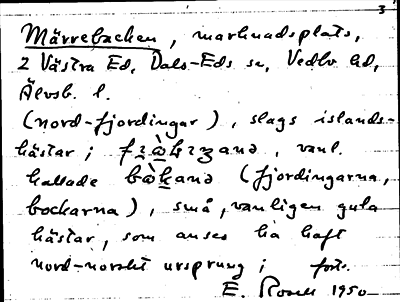 3
Märrebacken, marknadsplats,
i Västra Ed, Dals-Eds sn, Vedbo hd,
Älvsb. l.
(nord-fjordingar), slags islands-
hästar;
vanl.
kallade (fjordingarna,
bockarna), små, vanligen gula
hästar, som anses ha haft
nord-norskt ursprung; forts.
E. Rosell 1950